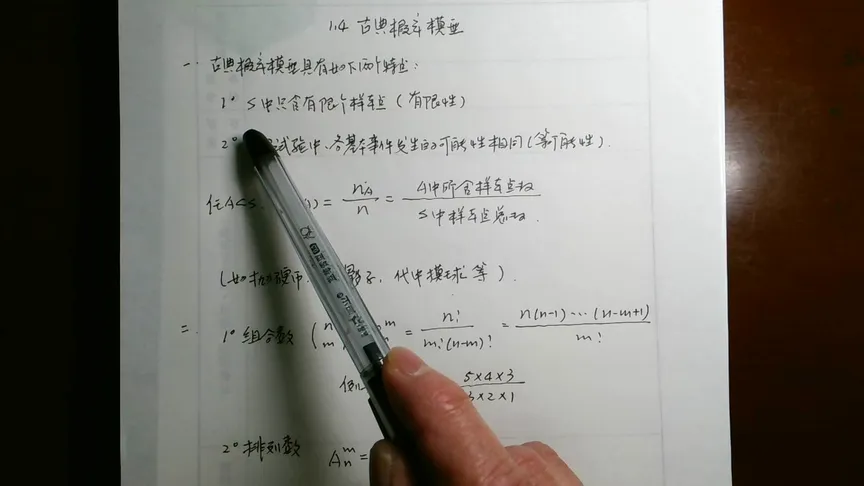 1.4 古典概率模型
一. 古典概率模型具有如下两个特点:
1° S中只含有限个样本点 (有限性)
2° 试验中、各基本事件发生的可能性相同 (等可能性).
任A⊂S = n_A / n = A中所含样本点数 / S中样本点总数.
(如抛硬币、骰子、袋中摸球等).
二. 1° 组合数 (n m = n! / m!(n-m)! = n(n-1)…(n-m+1) / m!
例 5×4×3 / 3×2×1
2° 排列数 A_n^m =